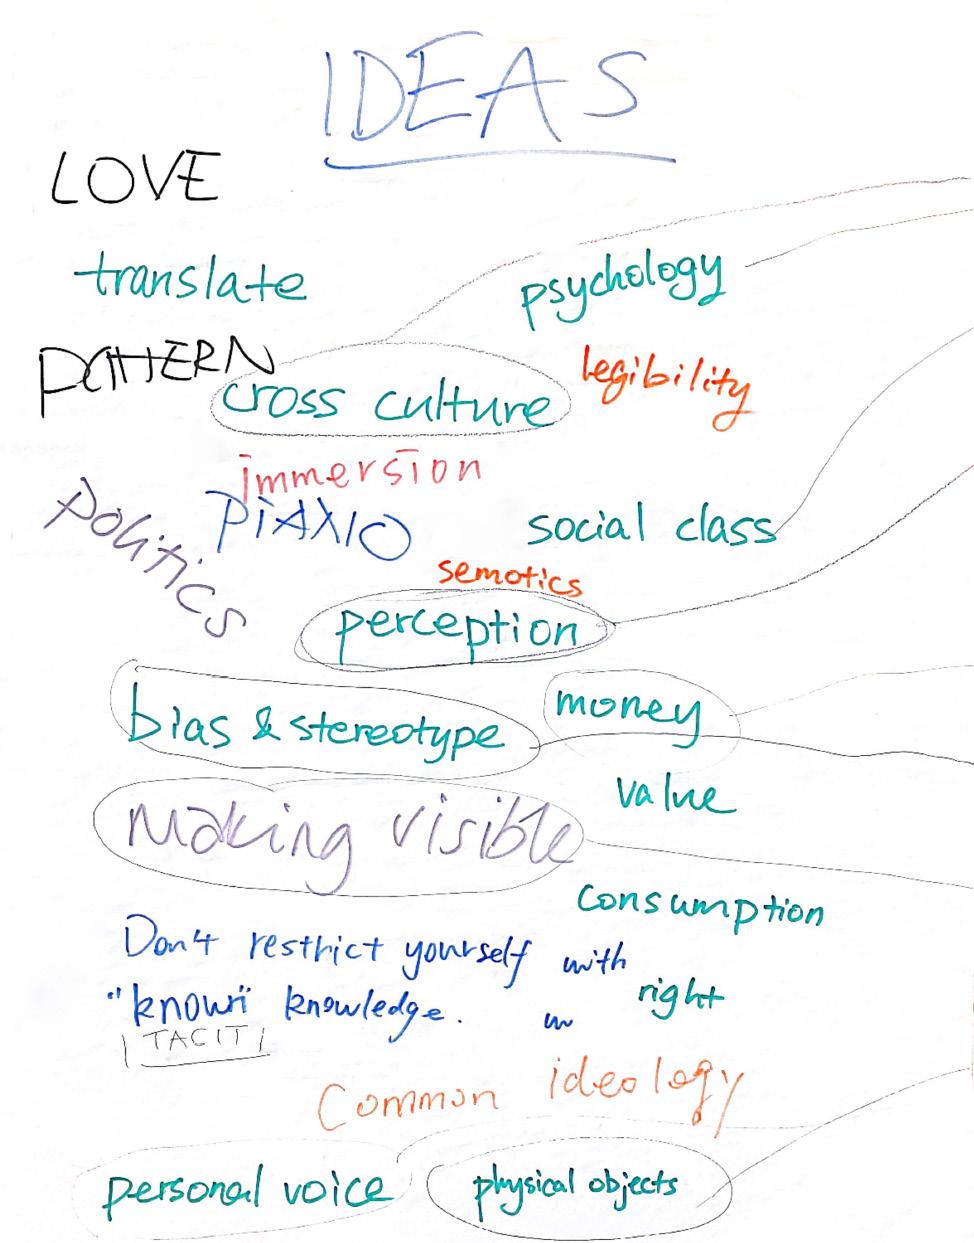 IDEAS
LOVE
translate
psychology
PATTERN
legibility
cross culture
immersion
politics
social class
semotics
perception
bias & stereotype
money
value
making visible
consumption
Don't restrict yourself with
"known" knowledge.
right
TACIT
Common ideology
personal voice
physical objects